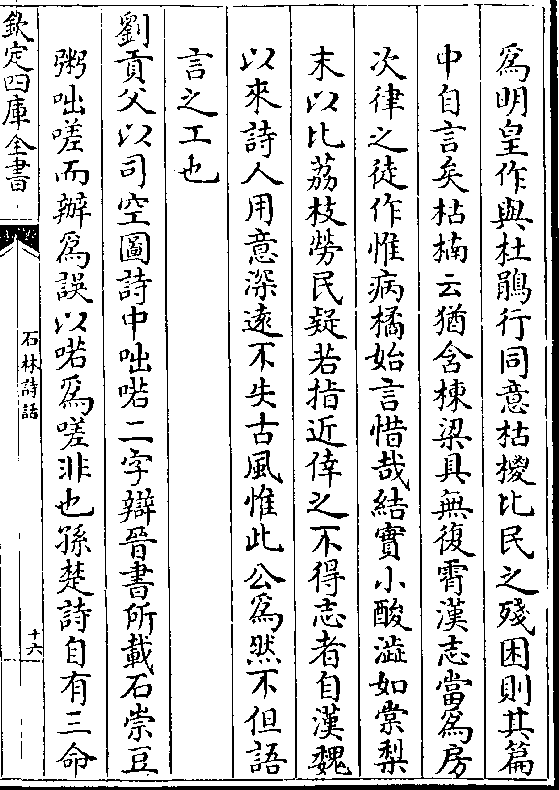 為明皇作與杜鵑行同意枯椶比民之殘困則其篇
中自言矣枯楠云猶含棟梁具無復霄漢志當為房
次律之徒作惟病橘始言惜哉結實小酸澁如棠梨
末以比荔枝勞民疑若指近倖之不得志者自漢魏
以來詩人用意深遠不失古風惟此公為然不但語
言之工也
劉貢父以司空圖詩中咄喏二字辯晉書所載石崇豆
粥咄嗟而辦為誤以喏為嗟非也孫楚詩自有三命
欽定四庫全書
石林詩話
十六